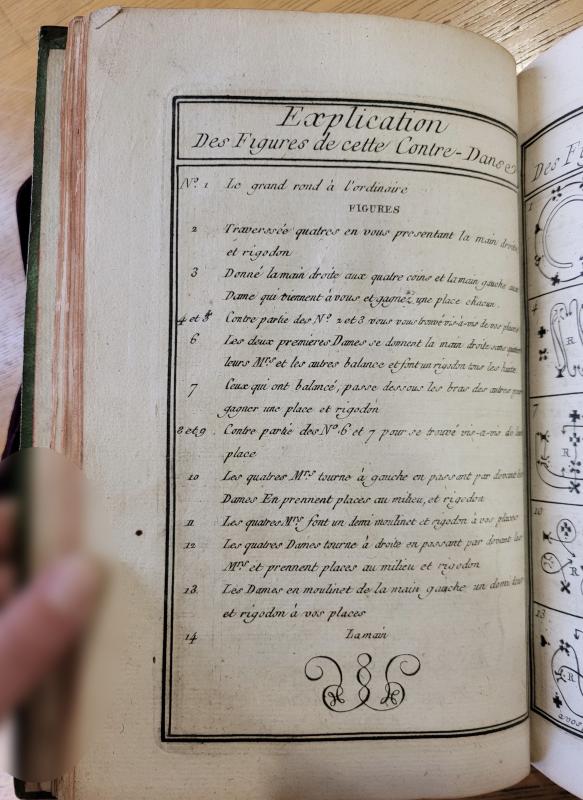 Explication
Des Figures de cette Contre-Danse
Nº. 1 Le grand rond à l'ordinaire
FIGURES
2 Traverssée quatres en vous presentant la main droite
et rigodon
3 Donné la main droite aux quatre coins et la main gauche aux
Dame qui viennent à vous et gagnez une place chacun.
4 et 5 Contre partie des Nº. 2 et 3 vous vous trouvé vis-à-vis de vos places
6 Les deux premieres Dames se donnent la main droite sans quitter
leurs Mrs et les autres balance et font un rigodon tous les huit
7 Ceux qui ont balancé, passe dessous les bras des autres pour
gagner une place et rigodon
8 et 9. Contre partie des Nº. 6 et 7 pour se trouvé vis-a-vis de
place
10 Les quatres Mrs tourne à gauche en passant par devant les
Dames En prennent places au milieu, et rigodon
11 Les quatres Mrs font un demi moulinet et rigodon à vos places
12 Les quatres Dames tourne à droite en passant par devant les
Mrs et prennent places au milieu et rigodon
13 Les Dames en moulinet de la main gauche un demi tour
et rigodon à vos places
14 La main
Des Fi
1
4
R
7
R
10
13
R
a vos